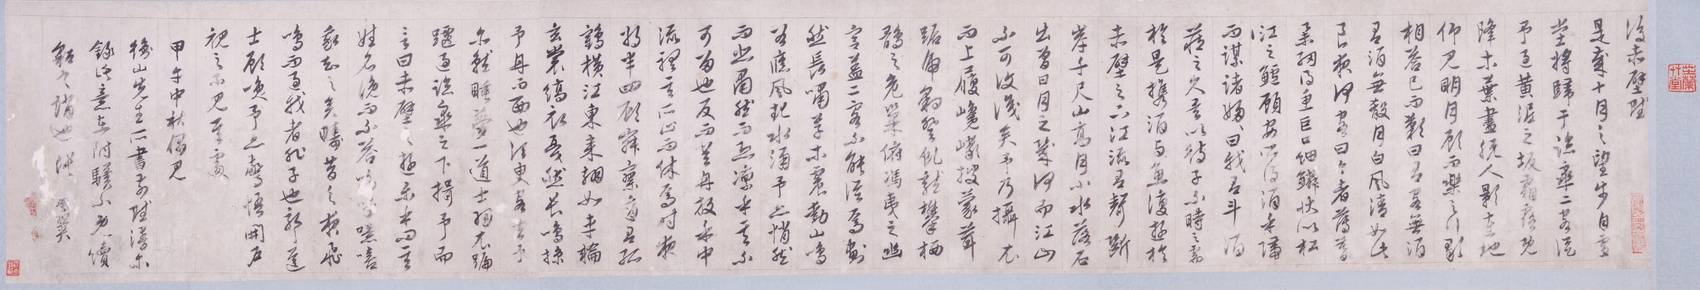 後赤壁賦
是歲十月之望步自雪
堂將歸于臨皋二客從
予過黃泥之坂霜露既
降木葉盡脫人影在地
仰見明月顧而樂之行歌
相答已而歎曰有客無酒
有酒無殽月白風清如此
良夜何客曰今者薄暮
舉網得魚巨口細鱗狀似松
江之鱸顧安所得酒乎歸
而謀諸婦婦曰我有斗酒
藏之久矣以待子不時之需
於是攜酒與魚復遊於
赤壁之下江流有聲斷
岸千尺山高月小水落石
出曾日月之幾何而江山
不可復識矣予乃攝衣
而上履巉巖披蒙茸
踞虎豹登虬龍攀棲
鶻之危巢俯馮夷之幽
宮蓋二客不能從焉劃
然長嘯草木震動山鳴
谷應風起水涌予亦悄然
而悲肅然而恐凜乎其不
可留也反而登舟放乎中
流聽其所止而休焉時夜
將半四顧寂寥適有孤
鶴橫江東來翅如車輪
玄裳縞衣戛然長鳴掠
予舟而西也須臾客去予
亦就睡夢一道士羽衣蹁
躚過臨皋之下揖予而
言曰赤壁之遊樂乎問其
姓名俛而不答嗚呼噫嘻
我知之矣疇昔之夜飛
鳴而過我者非子也耶道
士顧笑予亦驚悟開戶
視之不見其處
甲午中秋偶見
先生所書前賦漫爾
錄此意在附驥不免續
貂之誚也